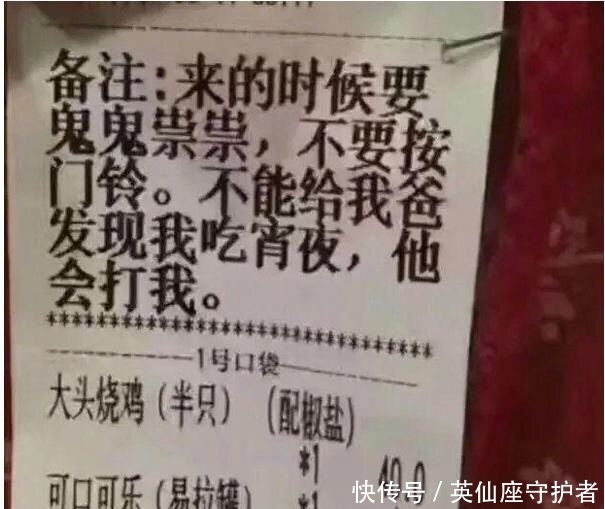 备注:来的时候要
鬼鬼祟祟，不要按
门铃。不能给我爸
发现我吃宵夜，他
会打我。
********************************
1号口袋
大头烧鸡（半只）（配椒盐）
*1
可口可乐（易拉罐）
*1
快传号／英仙座守护者